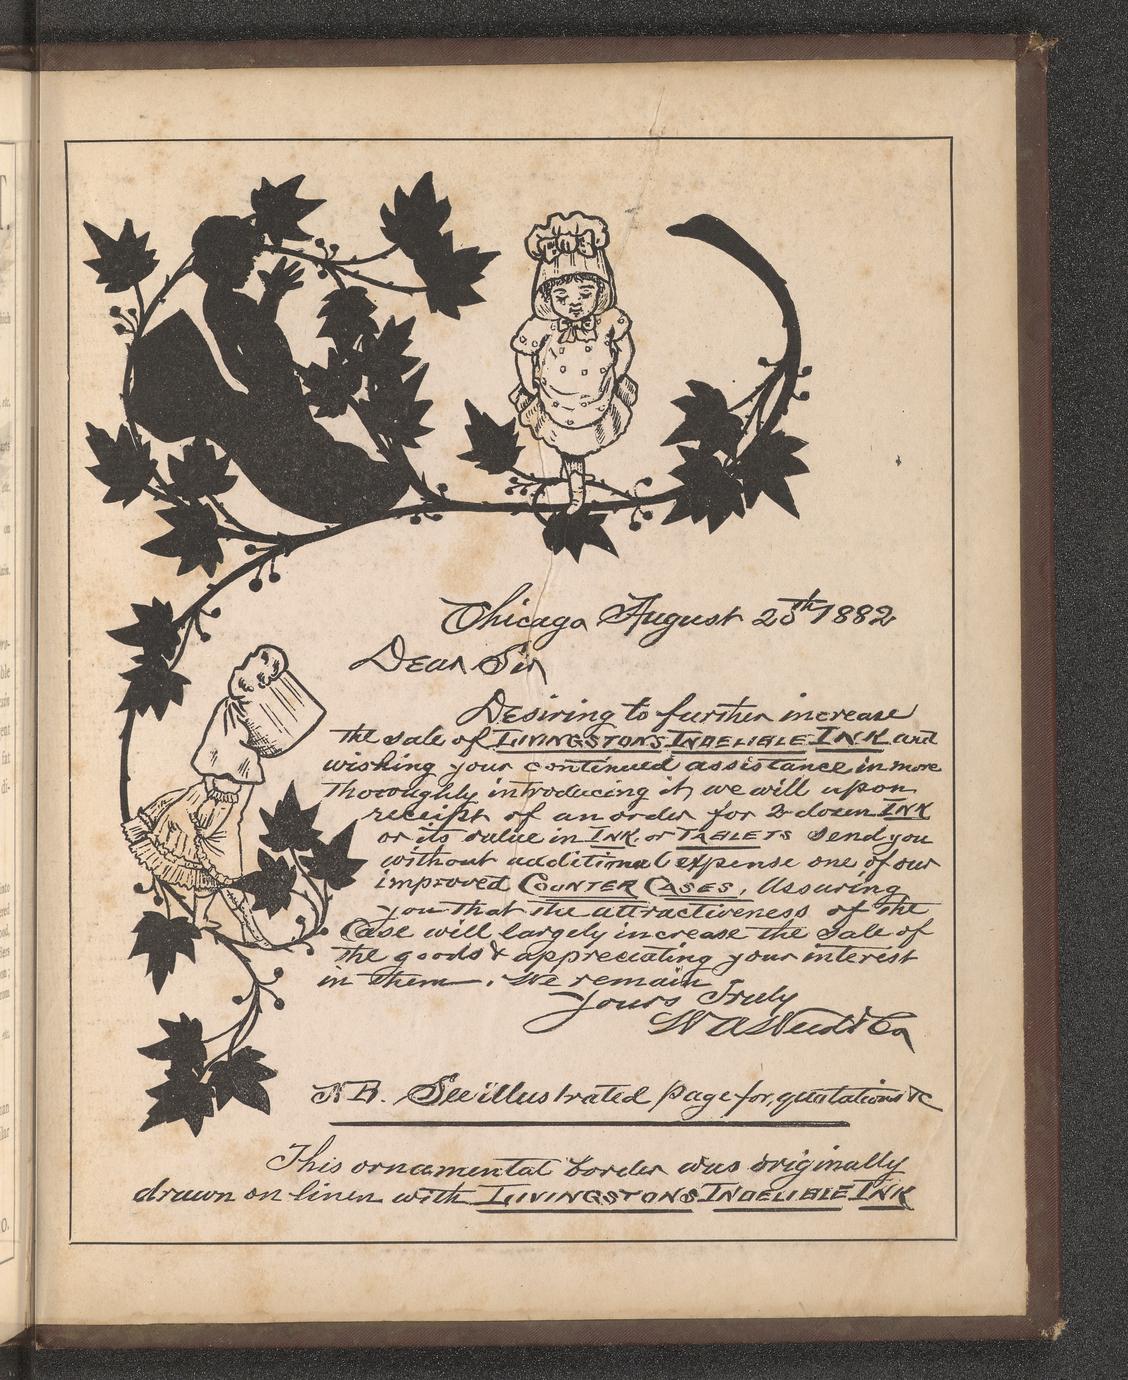 Chicago August 25th 1882
Dear Sir
Desiring to further increase
the sale of LIVINGSTONS INDELIBLE INK and
wishing your continued assistance in more
thoroughly introducing it, we will upon
receipt of an order for 2 dozen INK
or its value in INK or TABLETS send you
without additional expense one of our
improved COUNTER CASES, Assuring
you that the attractiveness of the
Case will largely increase the Sale of
the goods & appreciating your interest
in them. We remain
Yours Truly
W A & Co
NB. See illustrated page for, quotations &c
This ornamental border was originally
drawn on linen with LIVINGSTONS INDELIBLE INK